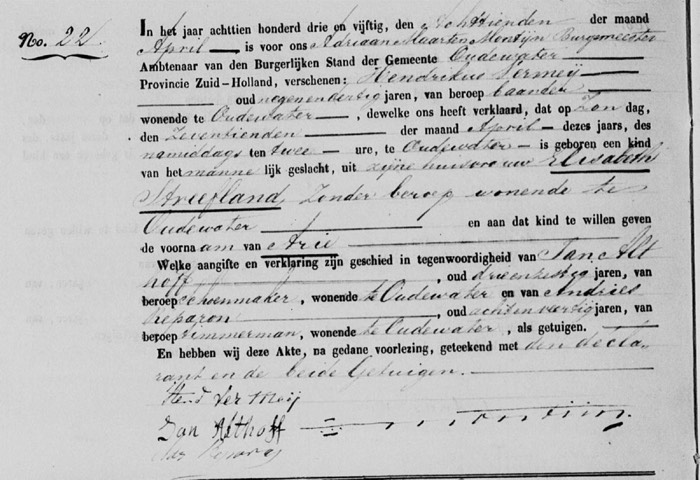 No. 22.
In het jaar achttien honderd drie en vijftig, den achttienden der maand
April is voor ons Adriaan Maarten Montijn Burgemeester
Ambtenaar van den Burgerlijken Stand der Gemeente Oudewater
Provincie Zuid-Holland, verschenen: Hendrikus Vermeij
oud negenendertig jaren, van beroep baander
wonende te Oudewater, dewelke ons heeft verklaard, dat op Zondag,
den Zeventienden der maand April dezes jaars, des
namiddags ten twee ure, te Oudewater is geboren een kind
van het mannelijk geslacht, uit zijne huisvrouw Elisabeth
Streefland, zonder beroep wonende te
Oudewater en aan dat kind te willen geven
de voornaam van Arie
Welke aangifte en verklaring zijn geschied in tegenwoordigheid van Jan Alt
hoff, oud drieenzestig jaren, van
beroep schoenmaker, wonende te Oudewater en van Andries
Reparon, oud achtenveertig jaren, van
beroep timmerman, wonende te Oudewater, als getuigen.
En hebben wij deze Akte, na gedane voorlezing, geteekend met den decla-
rant en de beide Getuigen.
Hend Ver Meij
Jan Althoff